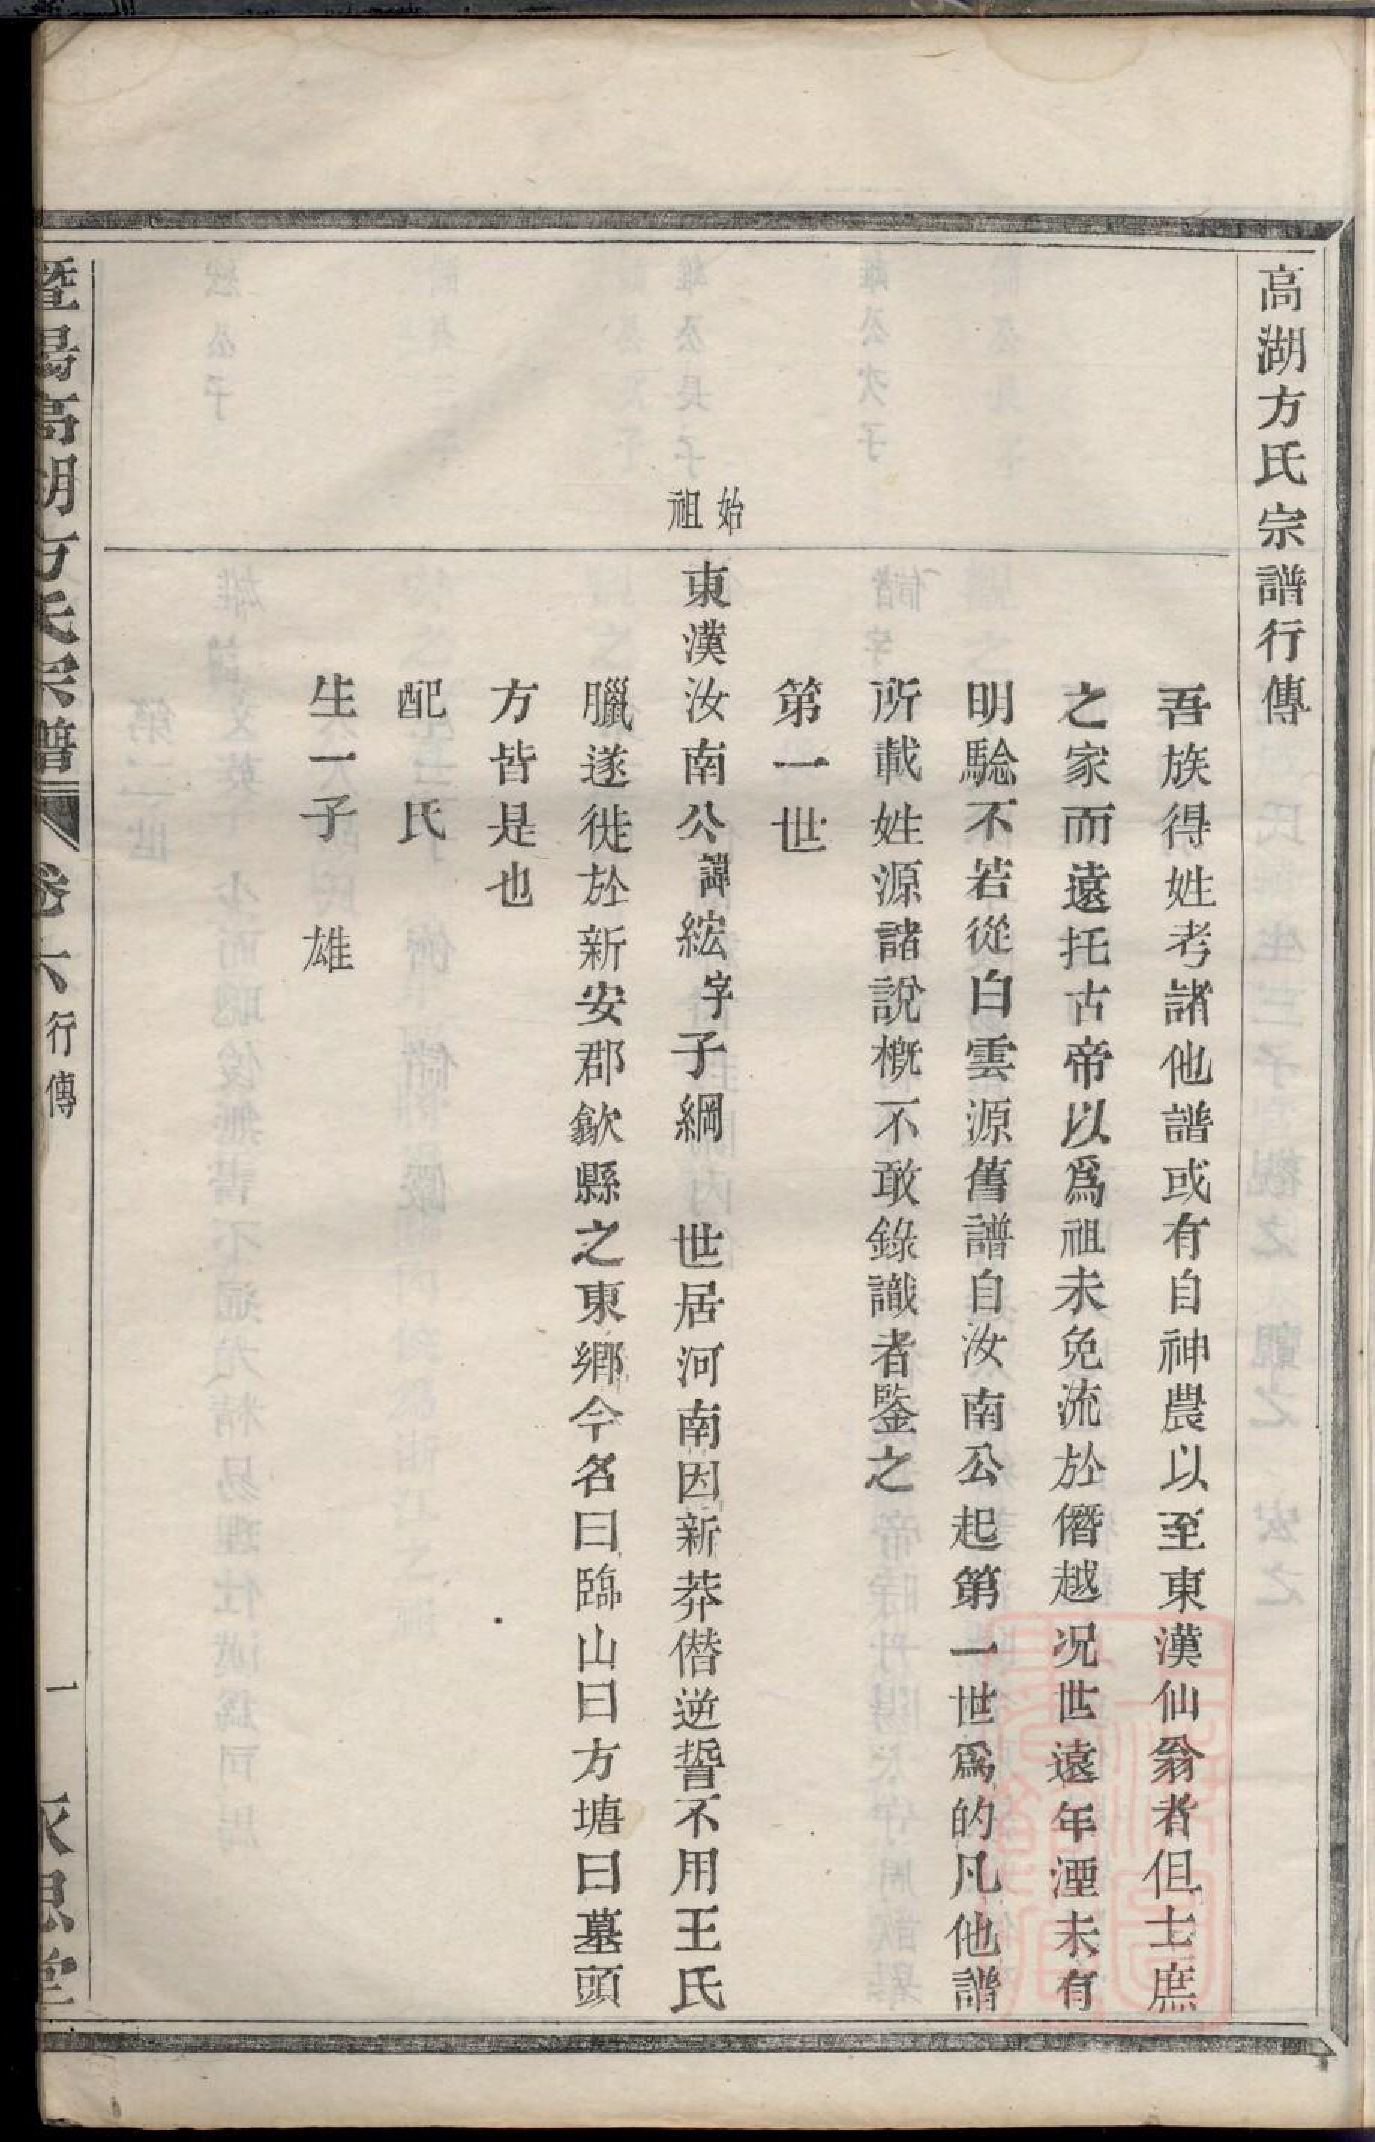 高湖方氏宗譜行傳
吾族得姓考諸他譜或有自神農以至東漢仙翁者但士庶
之家而遠托古帝以爲祖未免流於僭越况世遠年湮未有
明驗不若從白雲源舊譜自汝南公起第一世爲的凡他譜
所載姓源諸說槪不敢錄識者鑒之
第一世
始祖
東漢汝南公諱紘字子綱 世居河南因新莽僭逆誓不用王氏
臘遂徙於新安郡歙縣之東鄉今名曰臨山曰方塘曰墓頭
方皆是也
配 氏
生一子 雄
暨陽高湖方氏宗譜 卷六 行傳 一 永思堂